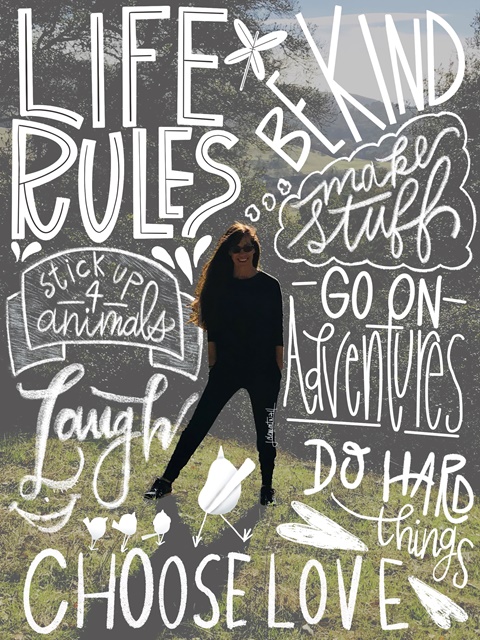 LIFE
RULES
BE KIND
make
stuff
stick up
4
animals
GO ON
Adventures
Laugh
DO HARD
things
CHOOSE LOVE